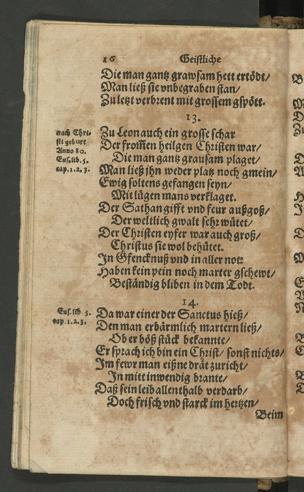 16 Geistliche
Die man gantz grawsam hett ertödt/
Man ließ sie vnbegraben stan/
Zu letzt verbrent mit grossem gspött.
13.
nach Chri-
sti geburt
Anno 80.
Eus. lib. 5.
cap. 1. 2. 3.
Zu Leon auch ein grosse schar
Der frommen heilgen Christen war/
Die man gantz grausam plaget/
Man ließ ihn weder platz noch gmein/
Ewig soltens gefangen seyn/
Mit lügen mans verklaget.
Der Sathan gifft vnd feur außgoß/
Der weltlich gwalt sehr wütet/
Der Christen eyfer war auch groß/
Christus sie wol behütet.
In Gfencknuß vnd in aller not
Haben kein pein noch marter gschewt/
Beständig bliben in dem Todt.
14.
Eus. lib. 5.
cap. 1. 2. 3.
Da war einer der Sanctus hieß/
Den man erbärmlich martern ließ/
Ob er böß stück bekannte/
Er sprach ich bin ein Christ/ sonst nichts/
Im fewr man eißne drät zuricht/
In mitt inwendig brante/
Daß sein leib allenthalb verdarb/
Doch frisch vnd starck im hertzen/
Beim